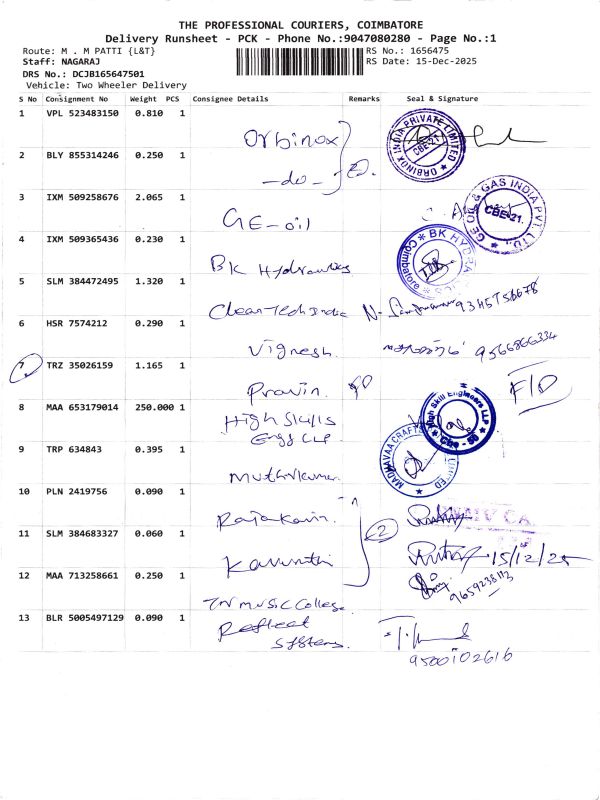 THE PROFESSIONAL COURIERS, COIMBATORE
Delivery Runsheet - PCK - Phone No.:9047080280 - Page No.:1
Route: M . M PATTI {L&T} RS No.: 1656475
Staff: NAGARAJ RS Date: 15-Dec-2025
DRS No.: DCJB165647501
Vehicle: Two Wheeler Delivery
S No Consignment No Weight PCS Consignee Details Remarks Seal & Signature
1 VPL 523483150 0.810 1 Orbinox ORBINOX INDIA PRIVATE LIMITED CBE-21.
2 BLY 855314246 0.250 1 -do- 2
3 IXM 509258676 2.065 1 GE-oil GE OIL & GAS INDIA PVT. LTD., CBE-21.
4 IXM 509365436 0.230 1 BK Hydraulics BK HYDRAULICS Coimbatore
5 SLM 384472495 1.320 1 Cleantech India 9345756678
6 HSR 7574212 0.290 1 Vignesh. 9566866334
7 TRZ 35026159 1.165 1 Pravin. F/D
8 MAA 653179014 250.000 1 High Skills Engg LLP High Skill Engineers LLP
9 TRP 634843 0.395 1 Muthukumar MADHAVAA CRAFTS LIMITED
10 PLN 2419756 0.090 1
11 SLM 384683327 0.060 1 2 15/12/25
12 MAA 713258661 0.250 1 TN Music College. 9659238113
13 BLR 5005497129 0.090 1 Reflect Systems. 9500102616